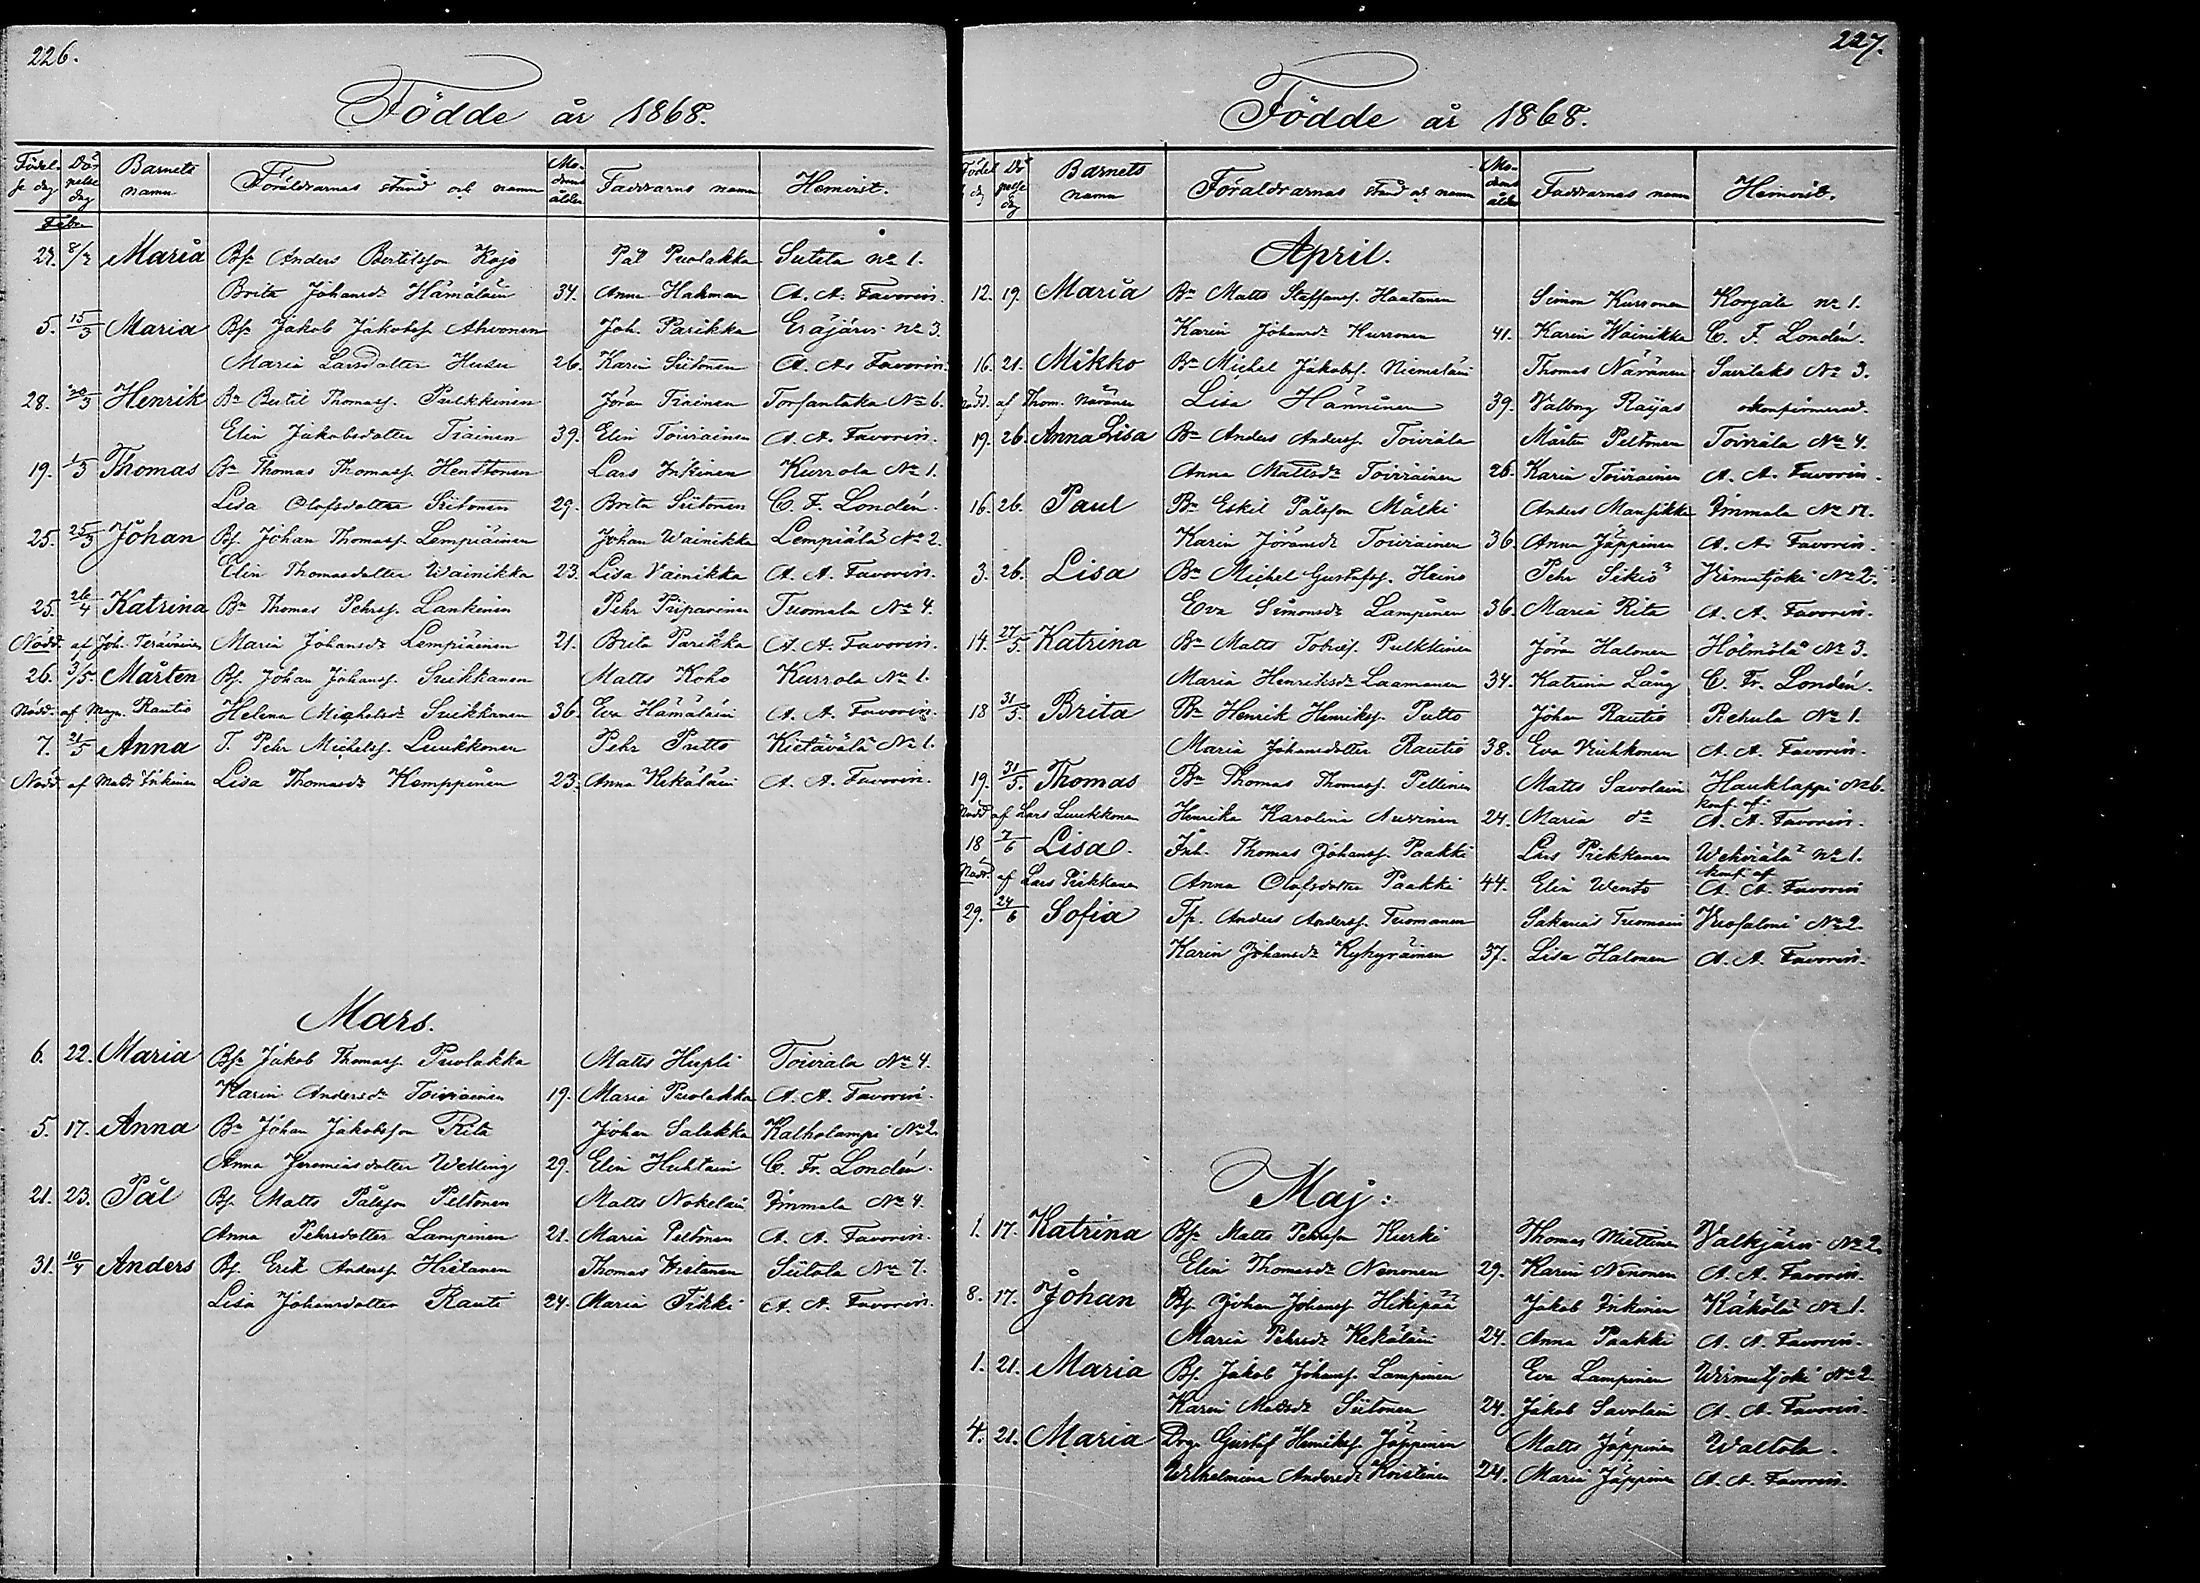 226.
Födde år 1868.
Födel-se dag Döpelse dag Barnets namn Föräldrarnas stånd och namn Modrens ålder Faddrarns namn Hemvist.
Febr.
27. 8/3 Maria Bfr Anders Bertilsson Kojo Pål Puolakka Sutela No 1.
Brita Johansdr Hämäläin 34. Anna Hakman A. A. Favorin.
5. 15/3 Maria Bfr Jakob Jakobsf. Ahvonen Joh. Parikka Eräjärvi No 3.
Maria Larsdotter Husu 26. Karin Siitonen A. A. Favorin.
28. 22/3 Henrik Bn Bertil Thomasf. Pulkkinen Jöran Tiainen Torsantaka No 6.
Elin Jakobsdotter Tiainen 39. Elin Toiviainen A. A. Favorin.
19. 1/3 Thomas Bn Thomas Thomasf. Henttonen Lars Inkinen Kurrola No 1.
Lisa Olofsdotter Siitonen 29. Brita Siitonen C. F. Londén.
25. 25/3 Johan Bf. Johan Thomasf. Lempiäinen Johan Wainikka Lempiälä No 2.
Elin Thomasdotter Wainikka 23. Lisa Vainikka A. A. Favorin.
25. 26/4 Katrina Bn Thomas Pehrsf. Lankinen Pehr Piipari­nen Tuomala No 4.
Nödd. af Joh. Teräväinen Maria Johansdr Lempiäinen 21. Brita Parikka A. A. Favorin.
26. 3/5. Mårten Bf. Johan Johansf. Suikkanen Matts Koho Kurrola No 1.
Nödd. af Mgn. Rautio Helena Michelsdr Suikkanen 36. Eva Hämäläin A. A. Favorin.
7. 21/5 Anna T. Pehr Michelsf. Luukkonen Pehr Putto Kietävälä No 1.
Nödd. af Matts Inkinen Lisa Thomasdr Kemppinen 23. Anna Kekäläin A. A. Favorin.
Mars.
6. 22. Maria Bfr Jakob Thomasf. Puolakka Matts Hupli Toiviala No 4.
Karin Andersdr Toiviainen 19. Maria Puolakka A. A. Favorin.
5. 17. Anna Bn Johan Jakobsson Rita Johan Salakka Kalholampi No 2.
Anna Jeremiasdotter Welling 29. Elin Huhtain C. Fr. Londén.
21. 23. Pål Bf. Matts Pålsson Peltonen Matts Nokelain Immala No 4.
Anna Pehrsdotter Lampinen 21. Maria Peltonen A. A. Favorin.
31. 10/4 Anders Bf. Erik Andersf. Hietanen Thomas Hietanen Siitola No 7.
Lisa Johansdotter Rauti 24. Maria Tikki A. A. Favorin.
227.
Födde år 1868.
Födel dg Döpelse dg Barnets namn Föräldrarnas stånd och namn Modrens ålder Faddrarnas namn Hemvist.
April.
12. 19. Maria Bn Matts Staffansf. Haatanen Simon Kurronen Korjala No 1.
Karin Johansdr Hurronen 41. Karin Wainikka C. F. Londén.
16. 21. Mikko Bn Michel Jakobsf. Niemeläin Thomas Näränen Saarlaks No 3.
Nödd. af Thom. Näränen Lisa Hänninen 39. Valborg Raijas okonfirmerad.
19. 26. Anna Lisa Bn Anders Andersf. Toiviala Mårten Peltonen Toiviala No 4.
Anna Mattsdr Toiviainen 26. Karin Toiviainen A. A. Favorin.
16. 26. Paul Bn Eskil Pålsson Mälki Anders Mansikka Immala No 17.
Karin Jöransdr Toiviainen 36. Anna Jäppinen A. A. Favorin.
3. 26. Lisa Bn Michel Gustafsf. Heino Pehr Sikiö Virmutjoki No 2.
Eva Simonsdr Lampinen 36. Maria Rita A. A. Favorin.
14. 27/5. Katrina Bn Matts Tobiasf. Pulkkinen Jöran Halonen Holmölä No 3.
Maria Henriksdr Laamanen 34. Katrina Lång C. Fr. Londén.
18 31/5. Brita Bn Henrik Henriksf. Putto Johan Rautio Rehula No 1.
Maria Johansdotter Rautio 38. Eva Kuhkonen A. A. Favorin.
19. 31/5. Thomas Bn Thomas Thomasf. Pellinen Matts Savolain Hauklappi No 6.
Nödd. af Lars Luukkonen Henrika Karolina Auvinen 24. Maria do konf. af A. A. Favorin.
18 7/6 Lisa. Inh. Thomas Johansf. Paakki Lars Piikkanen Wehviälä No 1.
Nödd. af Lars Piikkanen Anna Olofsdotter Paakki 44. Elin Wento konf. af A. A. Favorin
29. 24/6 Sofia Tp. Anders Andersf. Tuomanen Sakarias Tuomain Kuosaloni No 2.
Karin Johansdr Kyhyräinen 37. Lisa Halonen A. A. Favorin.
Maj:
1. 17. Katrina Bfr Matts Pehrsson Kurki Thomas Miettinen Valkjärvi No 2.
Elin Thomasdr Nenonen 29. Karin Nenonen A. A. Favorin.
8. 17. Johan Bf. Johan Johansf. Hikipää Jakob Inkinen Käkölä No 1.
Maria Pehrsdr Kekäläin 24. Anna Paakki A. A. Favorin.
1. 21. Maria Bf. Jakob Johansf. Lampinen Eva Lampinen Wirmutjoki No 2
Karin Mattsdr Siitonen 24. Jakob Savolain A. A. Favorin.
4. 21. Maria Drg. Gustaf Henriksf. Jäppinen Matts Jäppinen Waltola.
Wilhelmina Andersdr Koistinen 24. Maria Jäppinen A. A. Favorin.